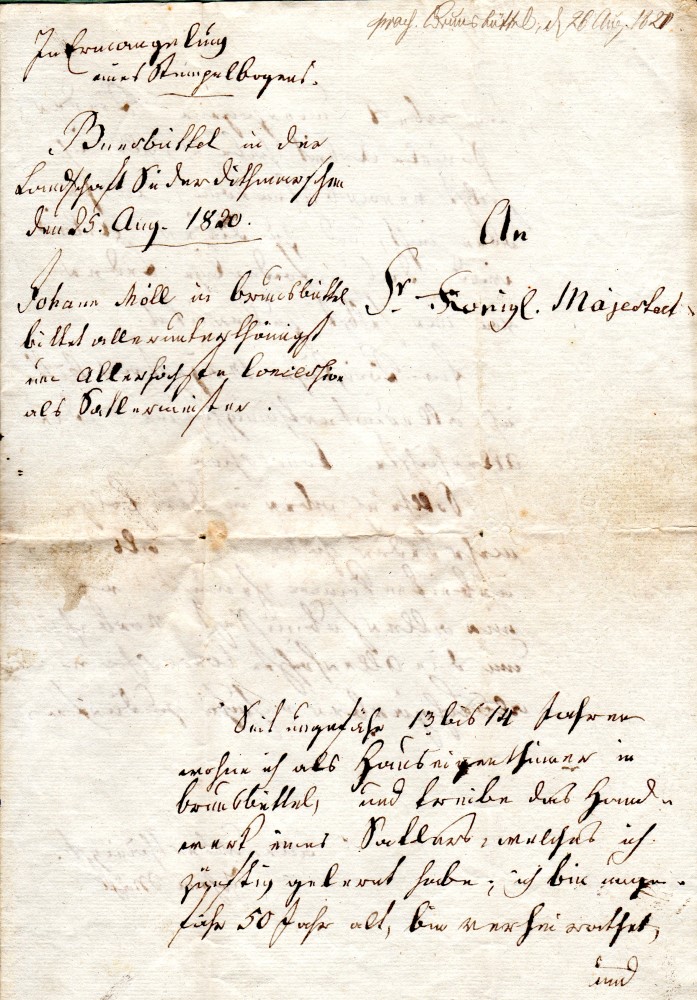 praes. Brunsbüttel, d 26 Aug. 1820
In Ermangelung
eines Stempelbogens.
Brunsbüttel in der
Landschaft Süderdithmarschen
den 25. Aug. 1820.
An
Sr Königl. Majestaet
Johann Möll in Brunsbüttel
bittet allerunterthänigst
um Allerhöchste Concession
als Satlermeister.
Seit ungefähr 13 bis 14 Jahren
wohne ich als Hauseigenthümer in
Brunsbüttel, und treibe das Hand-
werk eines Satlers, welches ich
zünftig gelernt habe; ich bin unge-
fähr 50 Jahr alt, bin verheirathet,
und